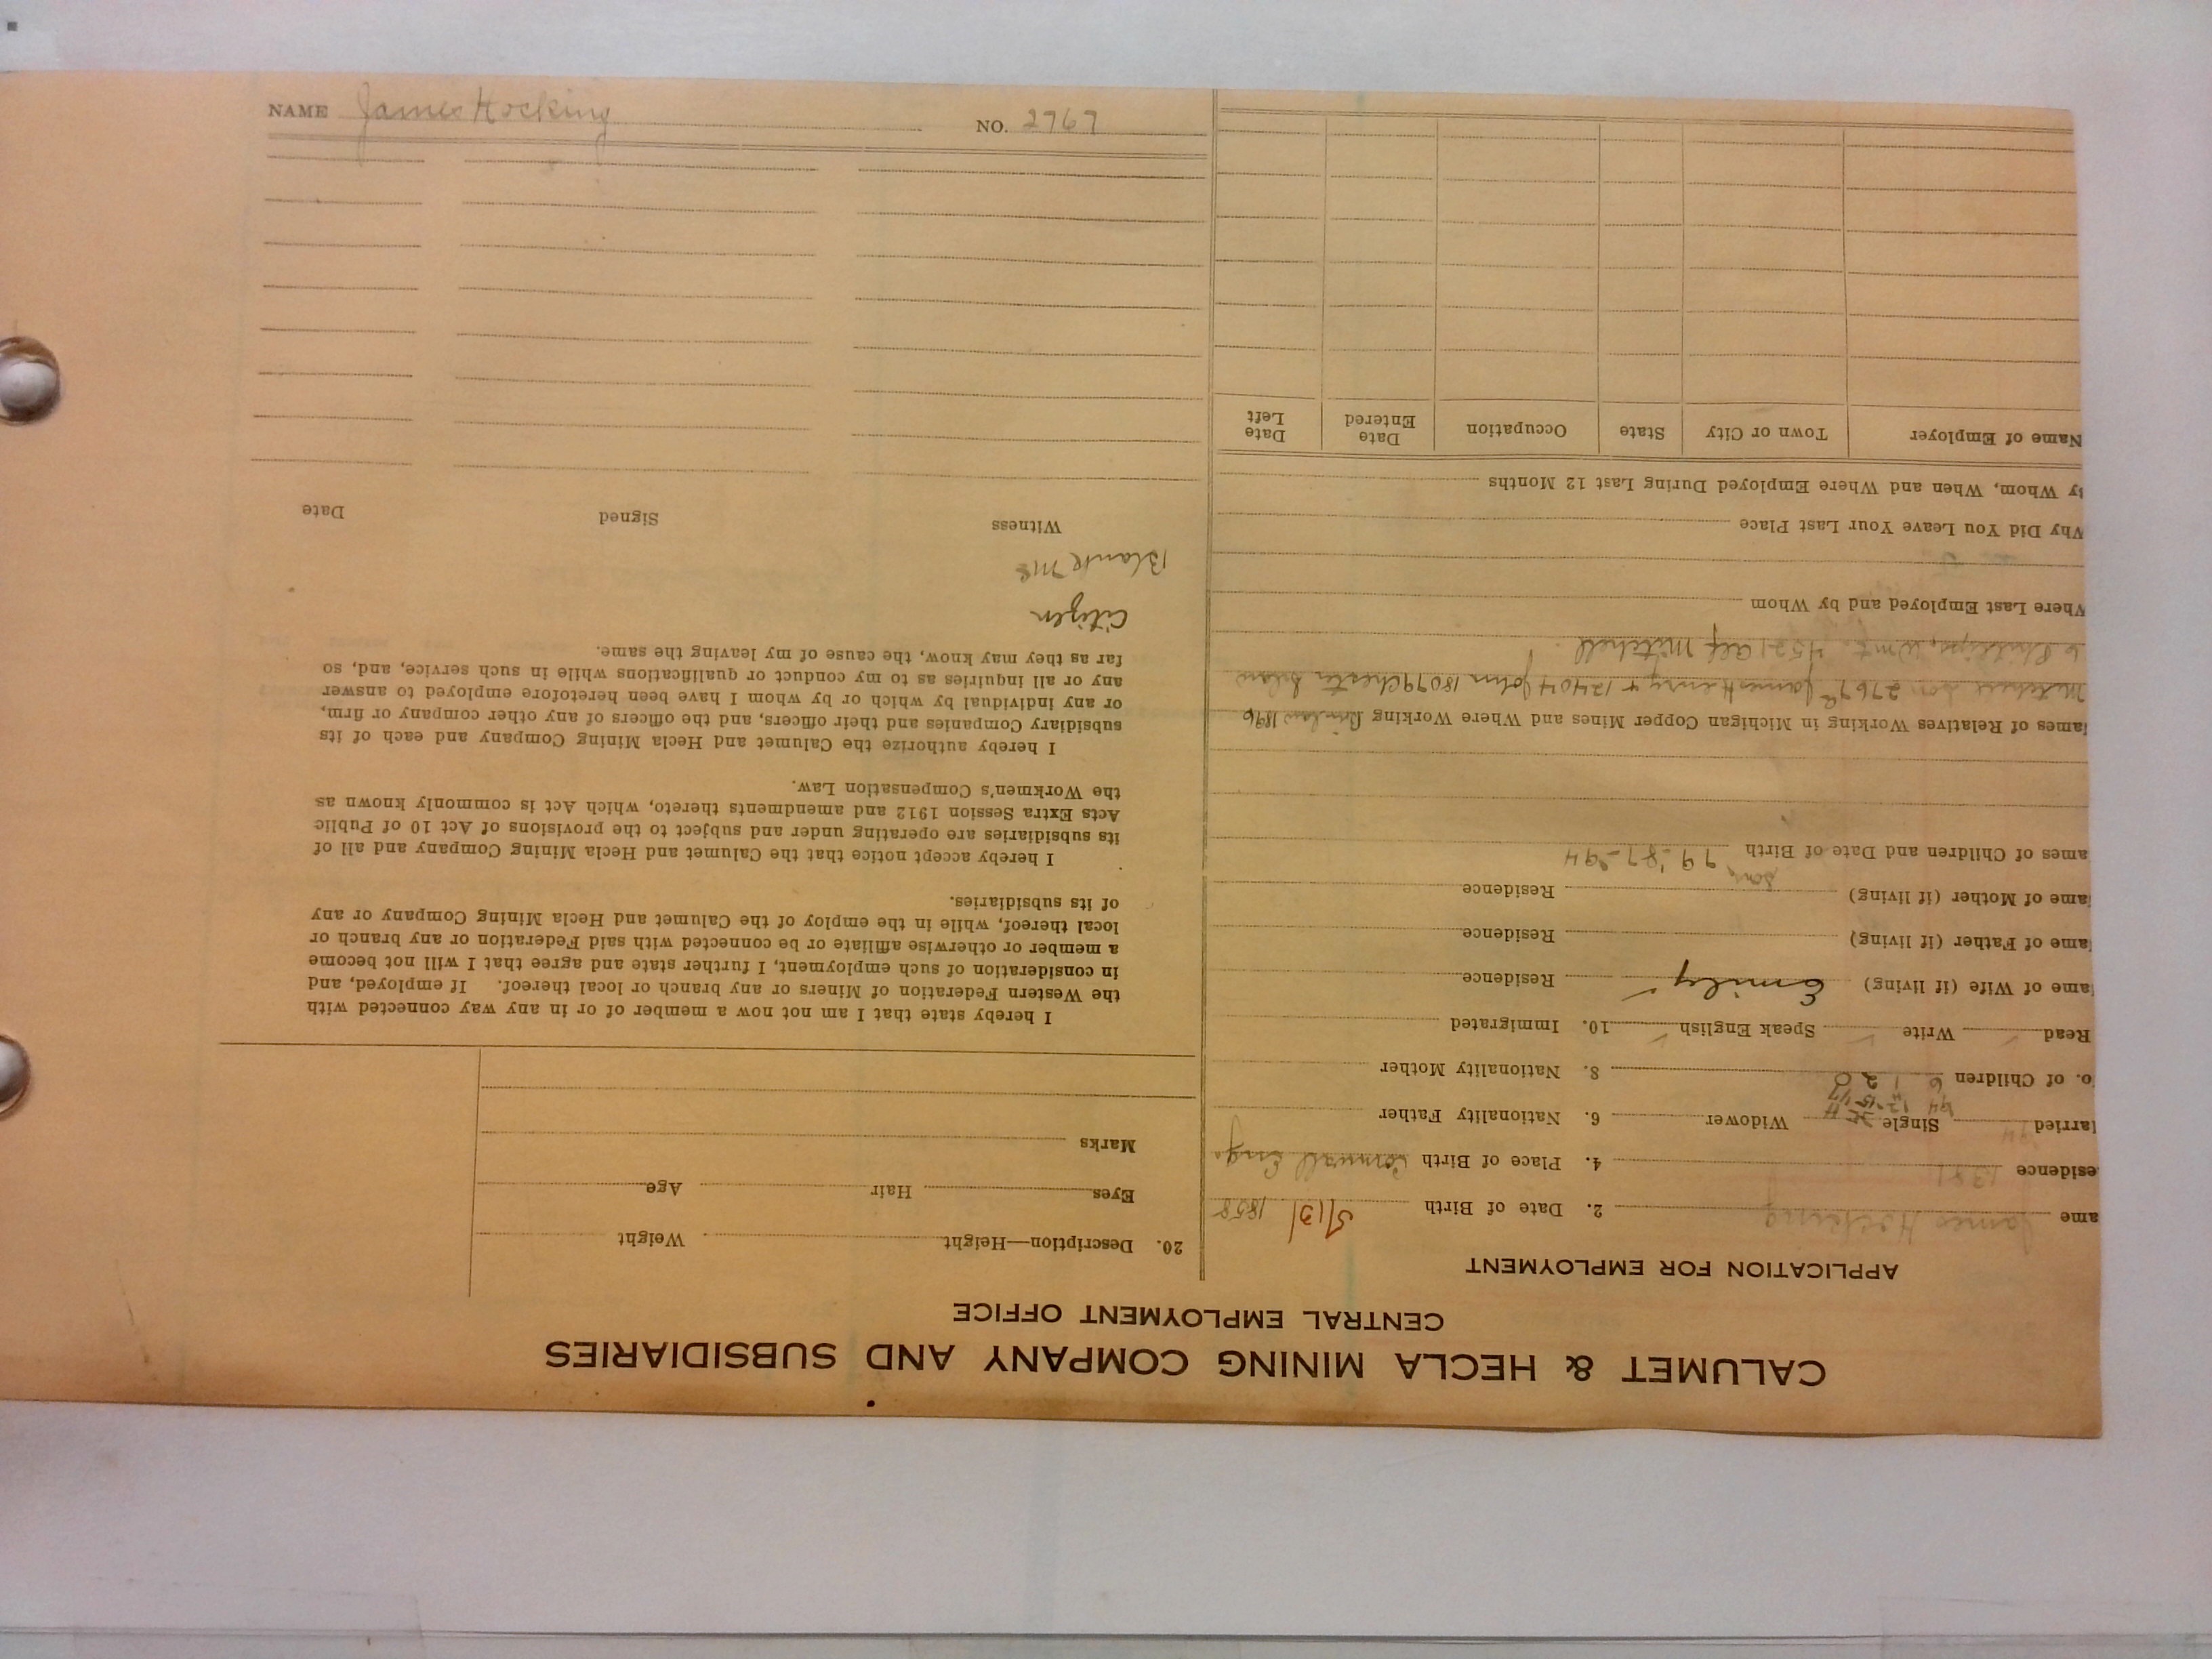 CALUMET & HECLA MINING COMPANY AND SUBSIDIARIES
CENTRAL EMPLOYMENT OFFICE
APPLICATION FOR EMPLOYMENT
ame James Hocking 2. Date of Birth 5/13/ 1858
esidence 1381 4. Place of Birth Cornwall Eng.
arried Single Widower 6. Nationality Father
o. of Children 6 1 2 0 8. Nationality Mother
Read Write Speak English 10. Immigrated
ame of Wife (if living) Emily Residence
ame of Father (if living) Residence
ame of Mother (if living) Residence
ames of Children and Date of Birth sons 79-87-94
ames of Relatives Working in Michigan Copper Mines and Where Working 1896
Mitchell son 2767 James Henry + 12404 John 18079 Chester
Phillips, Wm. 4521 Alf Mitchell
Where Last Employed and by Whom
Why Did You Leave Your Last Place
By Whom, When and Where Employed During Last 12 Months
Name of Employer Town or City State Occupation Date Entered Date Left
20. Description—Height Weight
Eyes Hair Age
Marks
I hereby state that I am not now a member of or in any way connected with
the Western Federation of Miners or any branch or local thereof. If employed, and
in consideration of such employment, I further state and agree that I will not become
a member or otherwise affiliate or be connected with said Federation or any branch or
local thereof, while in the employ of the Calumet and Hecla Mining Company or any
of its subsidiaries.
I hereby accept notice that the Calumet and Hecla Mining Company and all of
its subsidiaries are operating under and subject to the provisions of Act 10 of Public
Acts Extra Session 1912 and amendments thereto, which Act is commonly known as
the Workmen's Compensation Law.
I hereby authorize the Calumet and Hecla Mining Company and each of its
subsidiary Companies and their officers, and the officers of any other company or firm,
or any individual by which or by whom I have been heretofore employed to answer
any or all inquiries as to my conduct or qualifications while in such service, and, so
far as they may know, the cause of my leaving the same.
Citizen
Blank
Witness Signed Date
NAME James Hocking NO. 2767